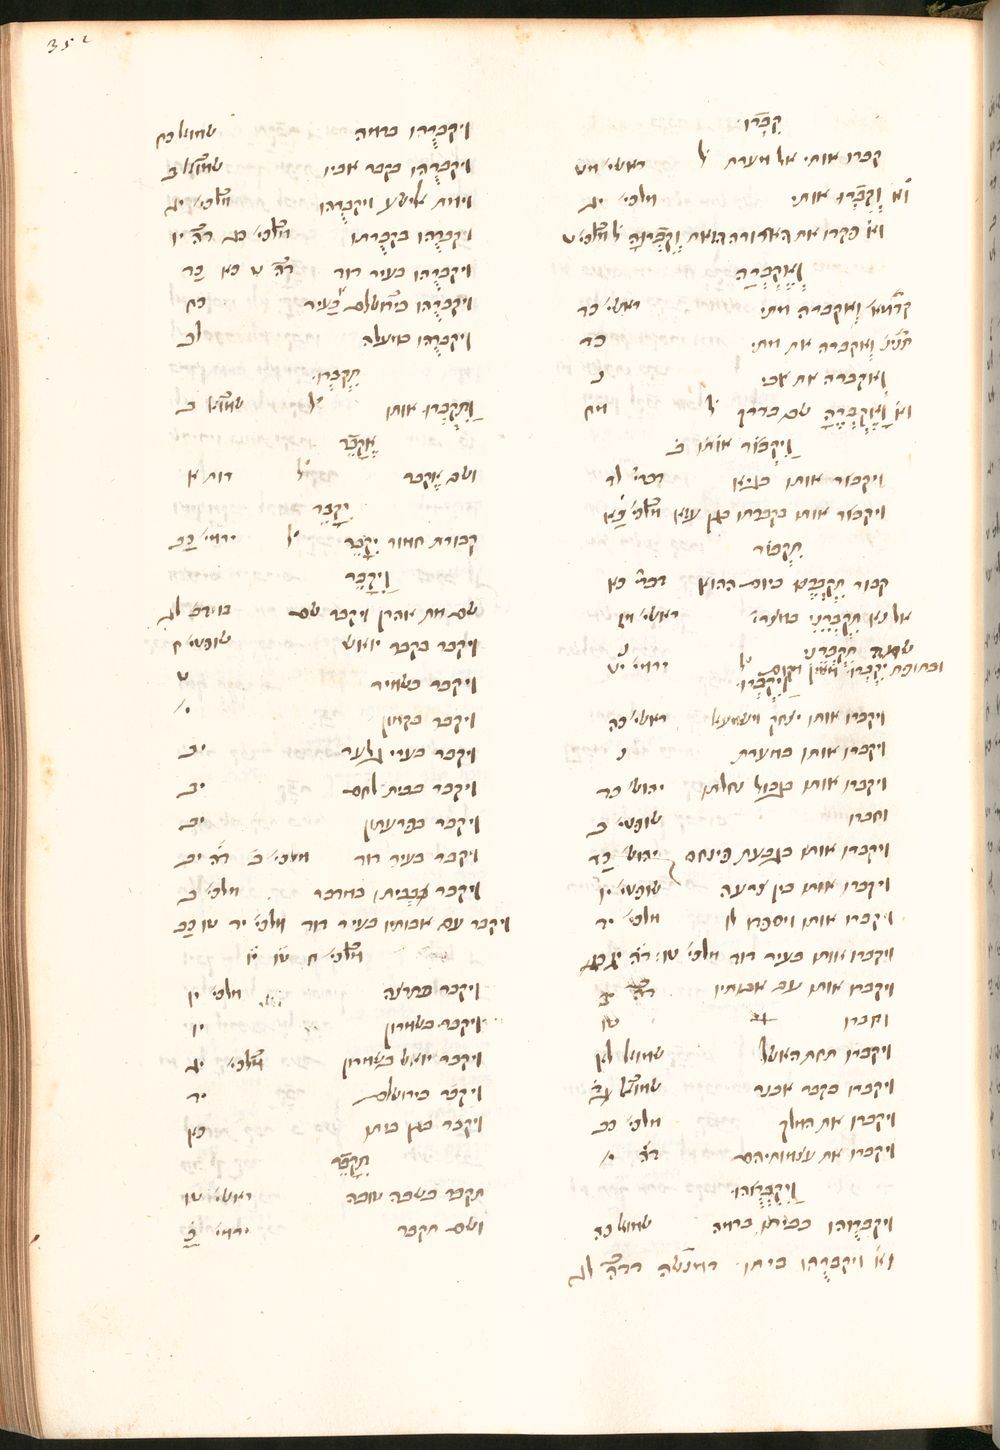 352
קִבְרוּ
קברו אותי אל מערת ל ראשי׳ מט
וא׳ וּקְבַרְתֶּם אותי מלכי׳ יג
וא׳ פקדו את הארורה הזאת וְקִבְרוּהָ
וְאֶקְבְּרָה
ואקברה מתי ראשי׳ כג
ואקברה את מתי כג
ואקברה את אבי נ
וא׳ וָאֶקְבְּרֶהָ שם בדרך ל מח
וַיִקְבּוֹר אותו ב
ויקבור אותו בגיא דברי׳ לד
ויקבור אותו בקברתו בגן עזא
תִקְבּוֹר
קבור תִקְבְּרֶנוּ ביום ההוא דברי׳ כא
אל נא תִקְבְּרֵנִי במצרי׳ ראשי׳ מז
ובתופת יִקְבְּרוּ מאין מקום ל ירמי׳ יט
וַיִקְבְּרוּ
ויקברו אותו יצחק וישמעאל ראשי׳ כה
ויקברו אותו במערת נ
ויקברו אותו בגבול נחלתו יהוש׳ כד
וחברו שופטי׳ ב
ויקברו אותו בגבעת פינחס יהוש׳ כד
ויקברו אותו בין צרעה שופטי׳ יו
ויקברו אותו ויספדו לו מלכי׳ יד
ויקברו אותו בעיר דוד מלכי׳ טו
ויקברו אותו עם אבותיו
וחברו טו
ויקברו תחת האשל שמואל לא
ויקברו בקבר אבנר
ויקברו את המלך מלכי׳ כב
ויקברו את עצמותיהם דה י
וַיִקְבְּרוּהוּ
ויקברוהו בביתו ברמה שמואל כה
וא׳ ויקברוהו ביתו דמנשה דדה לג
ויקברֻהו ברמה שמואל כח
ויקברֻהו בקבר אביו
וימת אלישע ויקברֻהו מלכי׳ יג
ויקברֻהו בקברתו
ויקברֻהו בעיר דוד דה ט כא כד
ויקברֻהו בירושלם בעיר כח
ויקברֻהו במעלה לב
תִקְבְּרוּ
וַתִקְבְּרוּ אותו ל ב
אֶקָבֵר
ושם אֶקבר ל רות א
יִקָבֵר
קבורת חמור יִקָבֵר ל ירמי׳ כב
וַיִקָבֵר
שם מת אהרן ויקבר שם
ויקבר בקבר יואש שופטי׳ ח
ויקבר בשמיר י
ויקבר בקמון י
ויקבר בערי גלעד יב
ויקבר בבית לחם יב
ויקבר בפרעתון יב
ויקבר בעיר דוד מלכי׳ ב דה יב
ויקבר בביתו במדבר מלכי׳ ב
ויקבר עם אבותיו בעיר דוד מלכי׳ יד טו כב
ויקבר בתרצה מלכי׳ יו
ויקבר בשמרון יו
ויקבר יואש בשמרון יג
ויקבר בירושלם יד
ויקבר בגן ביתו כא
תִקָבֵר
תקבר בשבה טובה ראשי׳ טו
ושם תקבר ירמי׳ כ